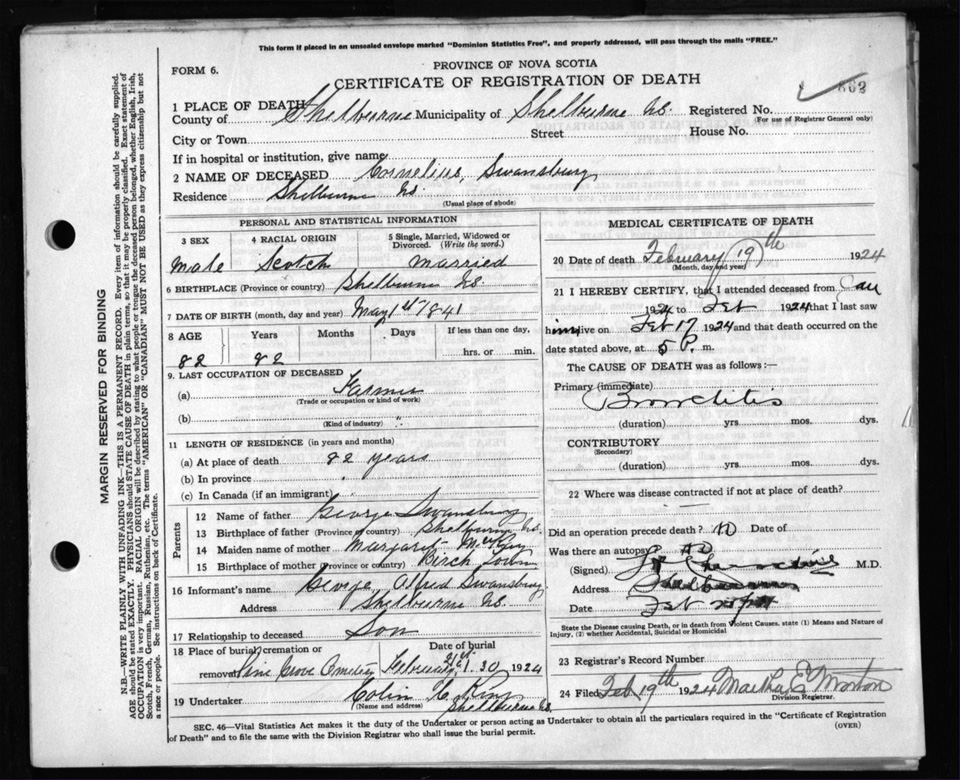 This form if placed in an unsealed envelope marked "Dominion Statistics Free", and properly addressed, will pass through the mails "FREE."
FORM 6.
PROVINCE OF NOVA SCOTIA
CERTIFICATE OF REGISTRATION OF DEATH
1 PLACE OF DEATH
County of Shelburne Municipality of Shelburne N.S. Registered No. 862
(For use of Registrar General only)
City or Town Street House No.
If in hospital or institution, give name
2 NAME OF DECEASED Cornelius, Swansburg
Residence Shelburne N.S.
(Usual place of abode)
PERSONAL AND STATISTICAL INFORMATION
3 SEX 4 RACIAL ORIGIN 5 Single, Married, Widowed or Divorced. (Write the word.)
Male Scotch Married
6 BIRTHPLACE (Province or country) Shelburne N.S.
7 DATE OF BIRTH (month, day and year) May 14 1841
8 AGE Years Months Days If less than one day,
82 82 hrs. or min.
9. LAST OCCUPATION OF DECEASED
(a) Farmer
(Trade or occupation or kind of work)
(b) "
(Kind of industry)
11 LENGTH OF RESIDENCE (in years and months)
(a) At place of death 82 years
(b) In province
(c) In Canada (if an immigrant)
Parents
12 Name of father George Swansburg
13 Birthplace of father (Province or country) Shelburne N.S.
14 Maiden name of mother Margaret McKay
15 Birthplace of mother (Province or country) Birch Town
16 Informant's name George Alfred Swansburg
Address Shelburne N.S.
17 Relationship to deceased Son
18 Place of burial, cremation or removal Pine Grove Cemetery Date of burial February 21st 1.20 1924
19 Undertaker Colin C. King
(Name and address) Shelburne N.S.
MEDICAL CERTIFICATE OF DEATH
20 Date of death February 19th 1924
(Month, day and year)
21 I HEREBY CERTIFY, that I attended deceased from Jan
1924 to Feb 1924 that I last saw
him alive on Feb 17 1924 and that death occurred on the
date stated above, at 5 P. m.
The CAUSE OF DEATH was as follows:—
Primary (immediate)
Bronchitis
(duration) yrs mos. dys.
CONTRIBUTORY
(Secondary)
(duration) yrs mos. dys.
22 Where was disease contracted if not at place of death?
Did an operation precede death? no Date of
Was there an autopsy? no
(Signed) M.D.
Address Shelburne
Date Feb
State the Disease causing Death, or in death from Violent Causes, state (1) Means and Nature of
Injury, (2) whether Accidental, Suicidal or Homicidal
23 Registrar's Record Number
24 Filed Feb 19th 1924 Martha E. Morton
Division Registrar.
SEC. 46—Vital Statistics Act makes it the duty of the Undertaker or person acting as Undertaker to obtain all the particulars required in the "Certificate of Registration
of Death" and to file the same with the Division Registrar who shall issue the burial permit.
(OVER)
MARGIN RESERVED FOR BINDING
N.B.—WRITE PLAINLY WITH UNFADING INK—THIS IS A PERMANENT RECORD. Every item of information should be carefully supplied.
AGE should be stated EXACTLY. PHYSICIANS should STATE CAUSE OF DEATH in plain terms, so that it may be properly classified. Exact statement of
OCCUPATION is very important. RACIAL ORIGIN will be described by stating to what people or tongue the deceased person belonged, whether English, Irish,
Scotch, French, German, Russian, Ruthenian, etc. The terms "AMERICAN" OR "CANADIAN" MUST NOT BE USED as they express citizenship but not
a race or people. See instructions on back of Certificate.